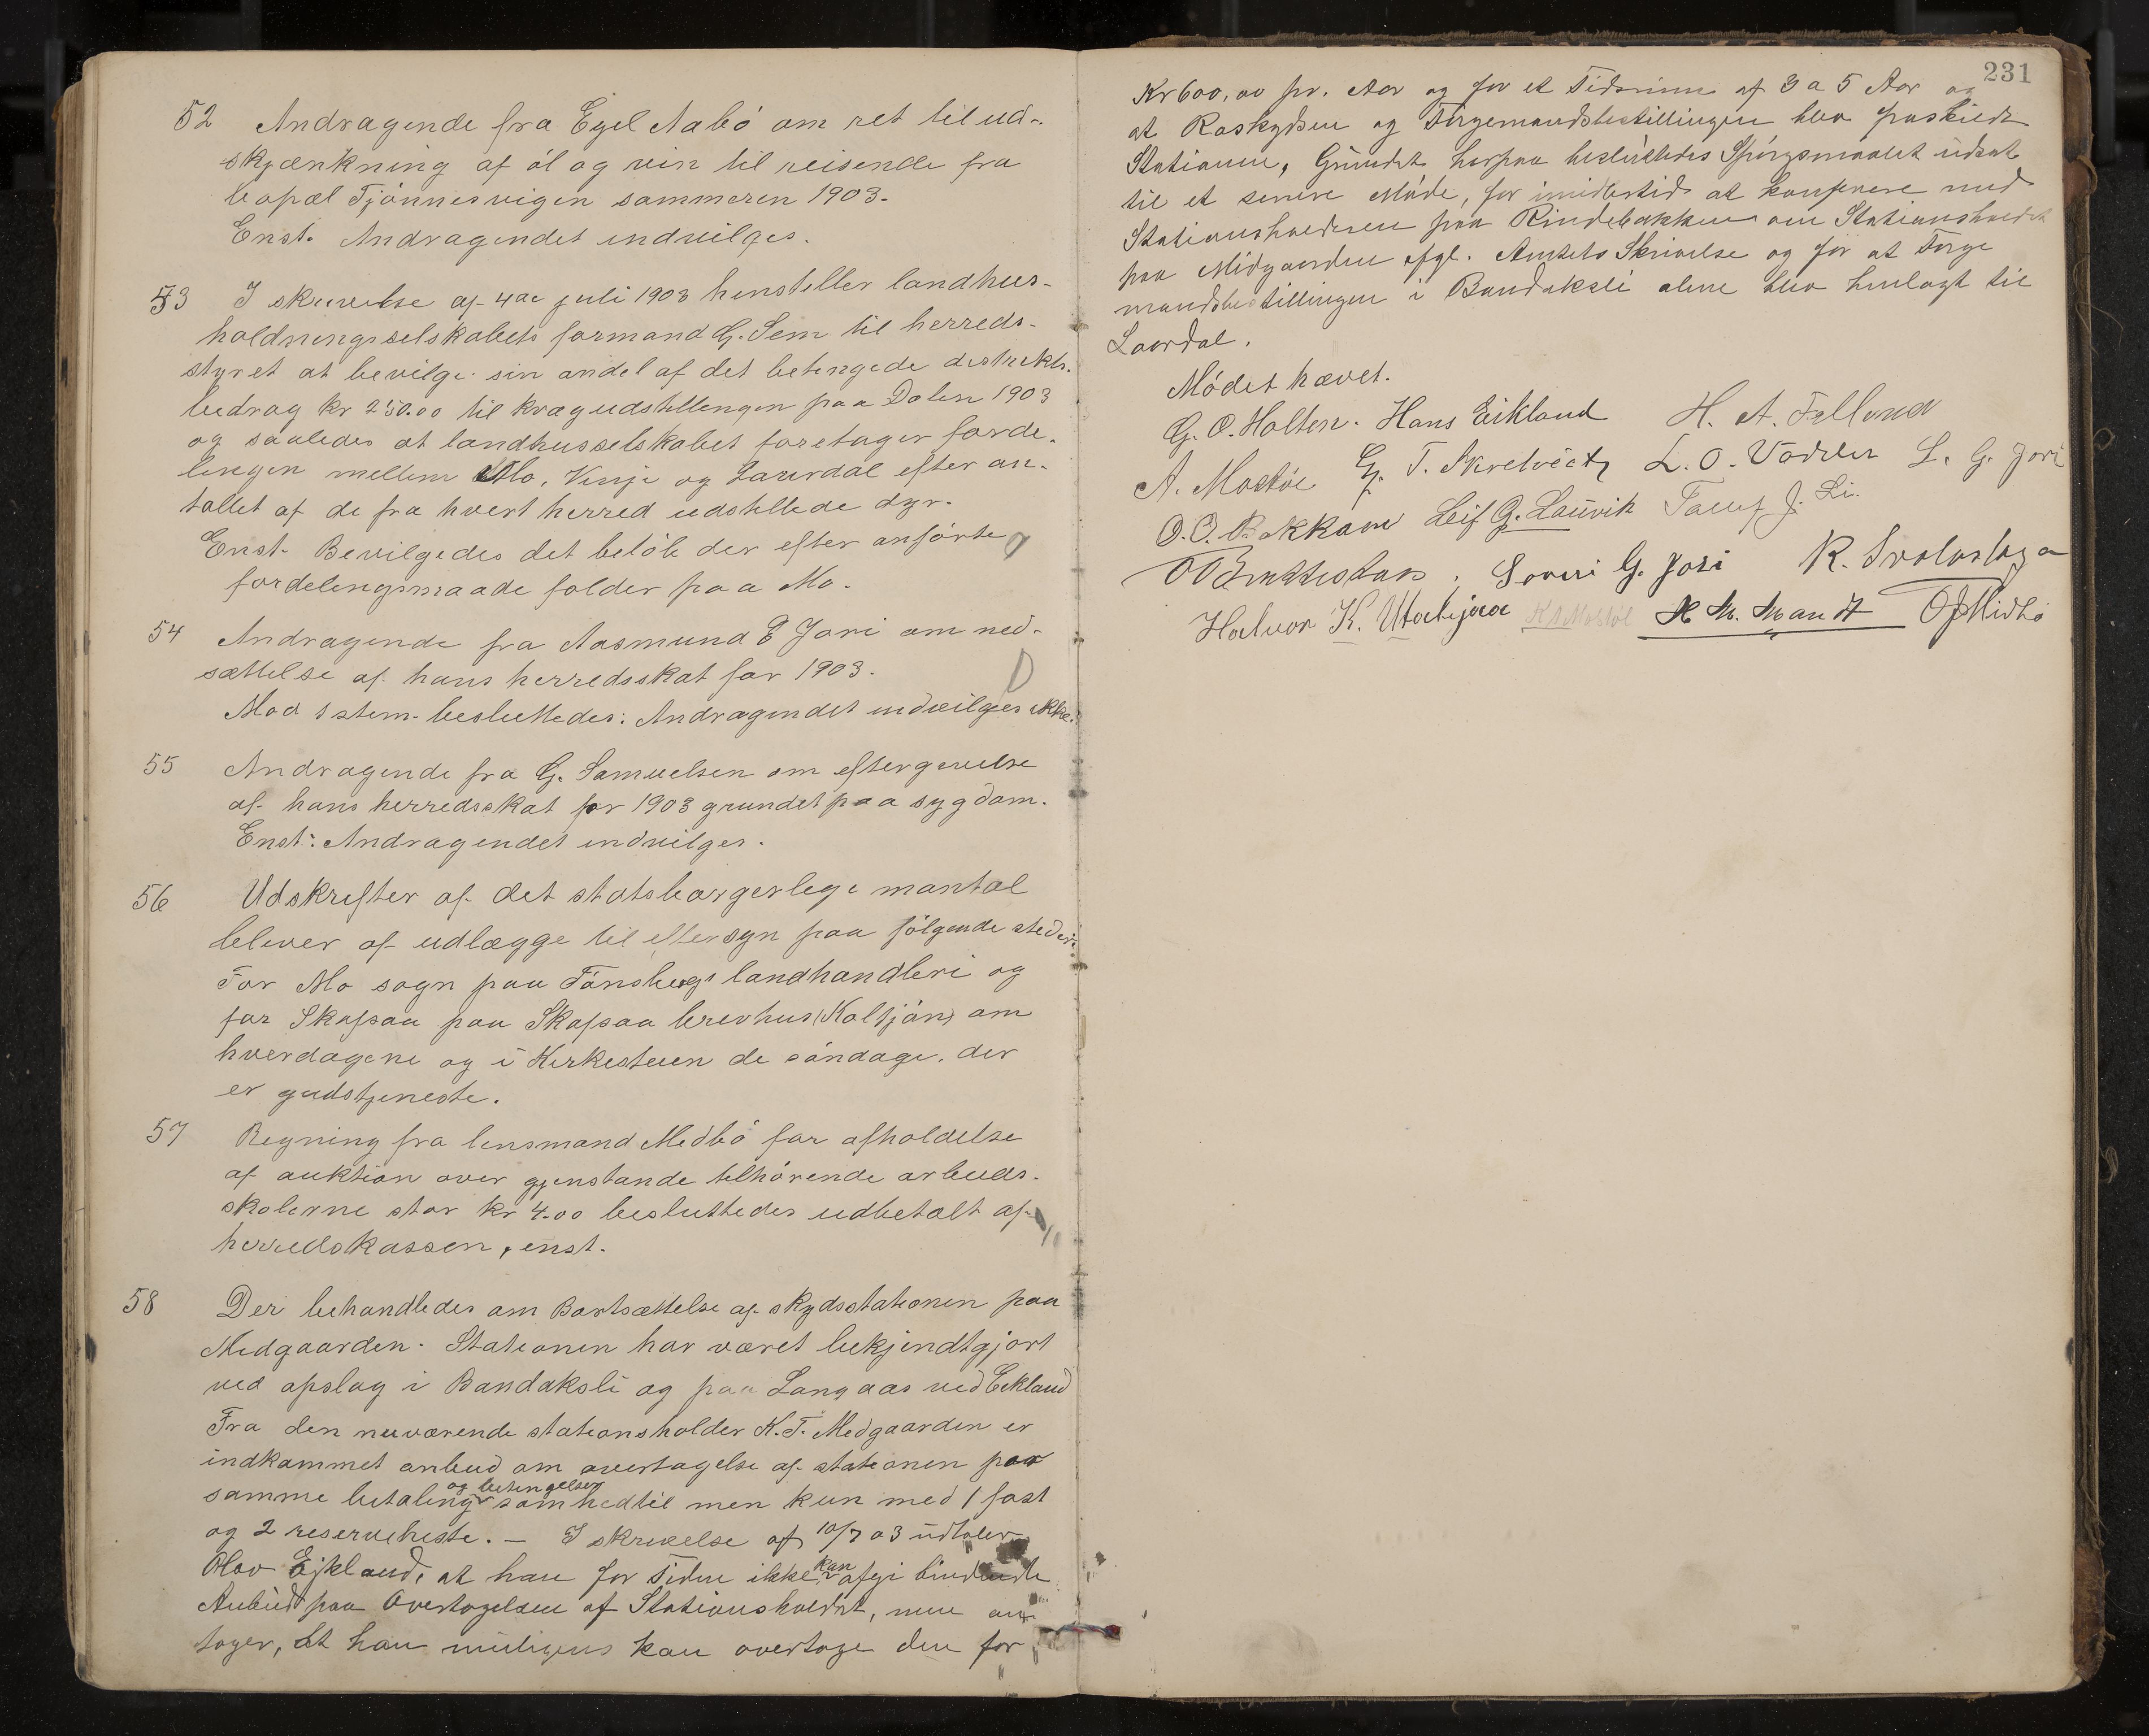 52 Andragende fra Egel Aabö om ret til ud-
skjænkning af öl og vin til reisende fra
bopæl Tjönnesvigen sommeren 1903.
Enst. Andragendet indvilges.
53 I skrivelse af 4de juli 1903 henstiller landhus-
holdningsselskabets formand G. Sem til herreds-
styret at bevilge sin andel af det betingede distrikts-
bidrag kr 250.00 til kvægudstillingen paa Dalen 1903
og saaledes at landhusselskabet foretager forde-
lingen mellem Mo, Vinje og Laurdal efter an-
tallet af de fra hvert herred udstillede dyr.
Enst. Bevilgedes det belöb der efter anförte
fordelingsmaade falder paa Mo.
54 Andragende fra Aasmund E Jori om ned-
sættelse af hans herredsskat for 1903.
Mod 1 stem. besluttedes: Andragendet indvilges ikke.
55 Andragende fra G. Samuelsen om eftergivelse
af hans herredsskat for 1903 grundet paa sygdom.
Enst: Andragendet indvilges.
56 Udskrifter af det statsborgerlige mantal
bliver af udlægge til eftersyn paa fölgende steder:
For Mo sogn paa Tönsbergs landhandleri og
for Skafsaa paa Skafsaa brevhus (Koltjön) om
hverdagene og i Kirkestuen de söndage, der
er gudstjeneste.
57 Regning fra lensmand Midbö for afholdelse
af auktion over gjenstande tilhörende arbeids-
skolerne stor kr 4.00 besluttedes udbetalt af
herredskassen, enst.
58 Der behandledes om Bortsættelse af skydsstationen paa
Midgaarden. Stationen har været bekjendtgjort
ved opslag i Bandaksli og paa Langaas ved Eikland
Fra den nuværende stationsholder K. T. Midgaarden er
indkommet anbud om overtagelse af stationen paa
samme betaling og betingelser som hedtil men kun med 1 fast
og 2 reserveheste. – I skrivelse af 10/7 03 udtaler
Olav Ejkland, at han for Tiden ikke kan afgi bindende
Anbud paa Overtagelsen af Stationsholdet, men an-
tager, at han muligens kan overtage den for
231
Kr 600,00 pr. Aar og for et Tidsrum af 3 a 5 Aar og
at Roskydsen og Færgemandsbestillingen blev fraskildt
Stationen, Grundet herpaa besluttedes Spörgsmaalet udsat
til et senere Möde, for imidlertid at konferere med
Stationsholderen paa Rindebakken om Stationsholdet
paa Midgaarden ifgl. Amtets Skrivelse og for at Færge
mandsbestillingen i Bandaksli alene blev henlagt til
Laurdal.
Mödet hævet.
G. O. Holten. Hans Eikland H. A. Felland
A. Mostöl G. T. Skretveit L. O. L. G. Jori
O. O. Bakkane Leif G. Lauvik J. Li.
Soveri G. Jori K.
Halvor K. Utabjaa K A Mostöl H M. Mandt O J Midbö